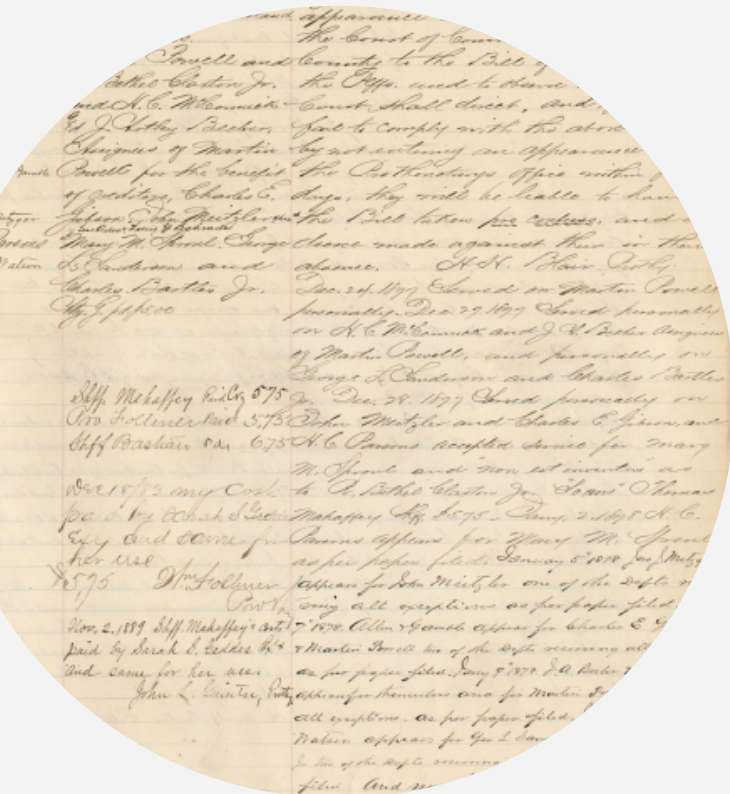 and
Powell and
Bethel Claxton Jr.
and H. C. McCormick
J. Lothy Beeber
Assignees of Martin
Powell for the benefit
of creditors, Charles E.
Gibson, John Meitzler
Mary M. Sproul. George
L. Sanderson and
Charles Bartles Jr.
Shff. Mahaffey Paid 575
Pro Follmer Paid 5,75
Shff Bastian 675
my Costs
paid by Sarah S Geddes
Exy and same for
her use
575 Wm Follmer
Prot.
Nov. 2. 1889 Shff. Mahaffey's costs
paid by Sarah S. Geddes
and same for her use.
John L. Guinter, Prothy
appearance
the Court of Com
County to the Bill of
the Plffs. and to observe
Court shall direct, and
fail to comply with the above
by not entering an appearance
the Prothonotarys Office within
days, they will be liable to have
the Bill taken pro confesso, and
decree made against them in their
absence. H. H. Blair, Prothy
Dec. 24. 1877 Served on Martin Powell
personally. Dec. 27 1877 Served personally
on H. C. McCormick and J. L. Beeber Assignees
of Martin Powell, and personally on
George L. Sanderson and Charles Bartles
Jr. Dec. 28. 1877 Served personally on
John Meitzler and Charles E. Gibson, and
H. C. Parsons accepted service for Mary
M. Sproul and "non est inventus" as
to R. Bethel Claxton Jr. Thomas
Mahaffey Shff. $575 2. 1878 H. C.
Parsons appears for Mary M. Sproul
as per paper filed. January 5" 1878 J. Metzger
appears for John Meitzler one of the Defts
all exceptions as per paper filed.
7" 1878. Allen & Gamble appear for Charles E G
& Martin Powell two of the Defts all
as per paper filed. Jany 9" 1878. J. A. Beeber
appears for themselves and for Martin
all exceptions. as per paper filed.
Watson appears for Geo L San
Jr two of the Defts
filed. And